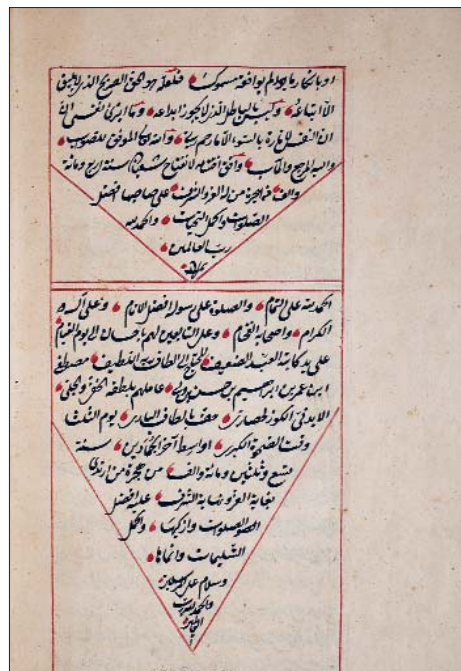 او بانكار ما لم يوافقه فلعله هو الحق الصريح الذي لا ينبغي
الا اتباعه وليس بالباطل الذي لا يجوز ابداعه وما ابرئ نفسي
ان النفس لامارة بالسوء الا ما رحم ربي والله الموفق للصواب
واليه المرجع والمآب وافق اختتامه لافتتاح شعبان سنة اربع ومائة
والف من هجرة من له العز والشرف على صاحبها افضل
الصلوات واكمل التحيات والحمد لله
رب العالمين
الحمد لله على التمام والصلوة على رسوله افضل الانام وعلى آله
الكرام واصحابه الفخام وعلى التابعين لهم باحسان الى يوم القيام
على يد كاتبه العبد الضعيف المحتاج الى الطاف ربه اللطيف مصطفى
ابن عمر بن ابراهيم بن حسن عاملهم بلطفه الخفي والجلي
الايدني الكوزلحصاري حف بالطاف الباري يوم الثلث
وقت الضحوة الكبرى اواسط آخر الجمادين سنة
تسع وثلثين ومائة والف من هجرة من ارتدى
بغاية العز ونهاية الشرف عليه افضل
الصلوات وازكيها واكمل
التسليمات وانماها
وسلام على المرسلين
والحمد لله رب
العالمين